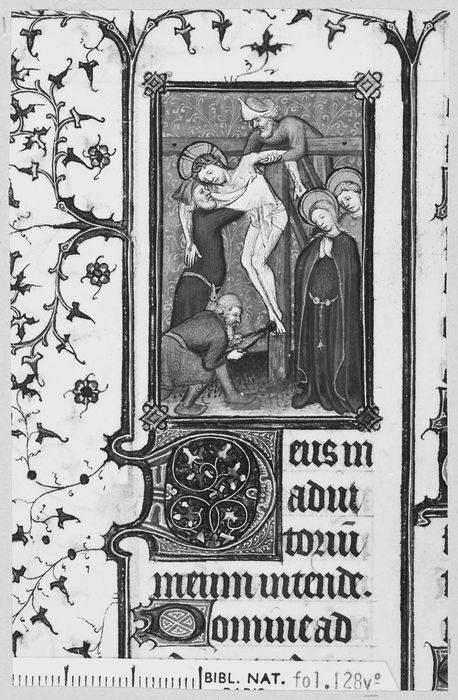 eus in
adiut
toriū
meum intende.
Domine ad
BIBL. NAT. fol. 128vº
PARIS